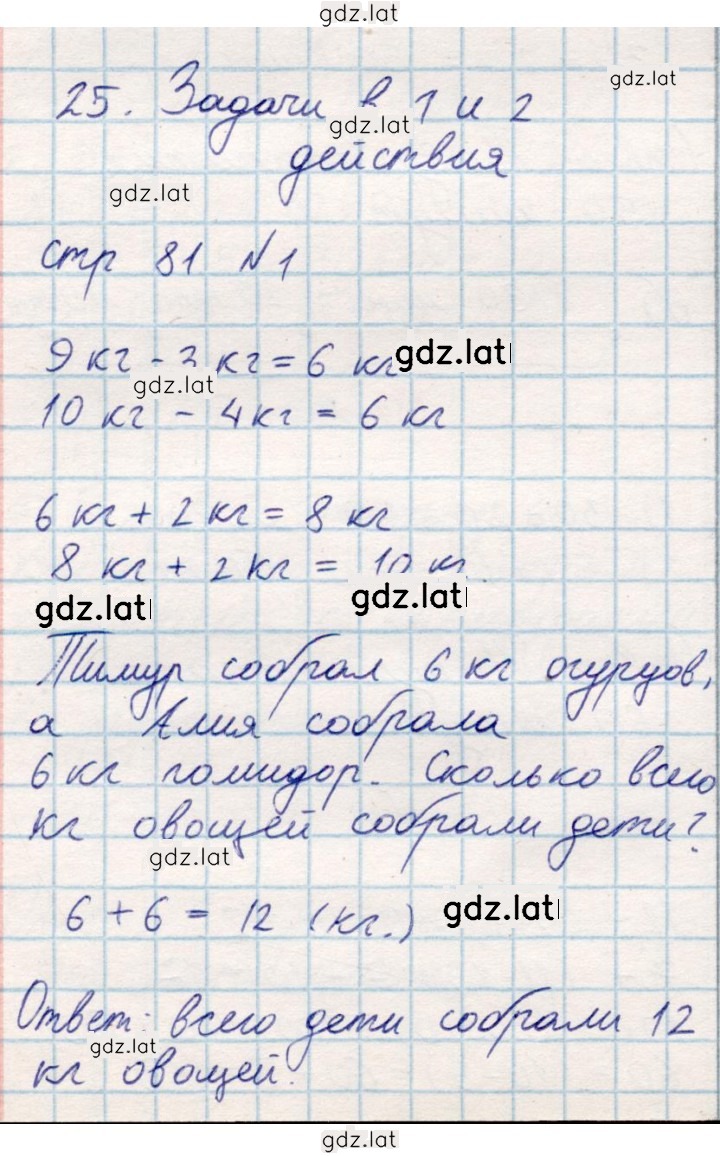 gdz.lat
gdz.lat
25. Задачи в 1 и 2
gdz.lat
действия
gdz.lat
стр 81 №1
9 кг - 3 кг = 6 кг
gdz.lat
gdz.lat
10 кг - 4 кг = 6 кг
6 кг + 2 кг = 8 кг
8 кг + 2 кг = 10 кг.
gdz.lat
gdz.lat
Тимур собрал 6 кг огурцов,
а Алия собрала
6 кг помидор. Сколько всего
кг овощей собрали дети?
gdz.lat
6 + 6 = 12 (кг.)
gdz.lat
Ответ: всего дети собрали 12
gdz.lat
кг овощей.
gdz.lat